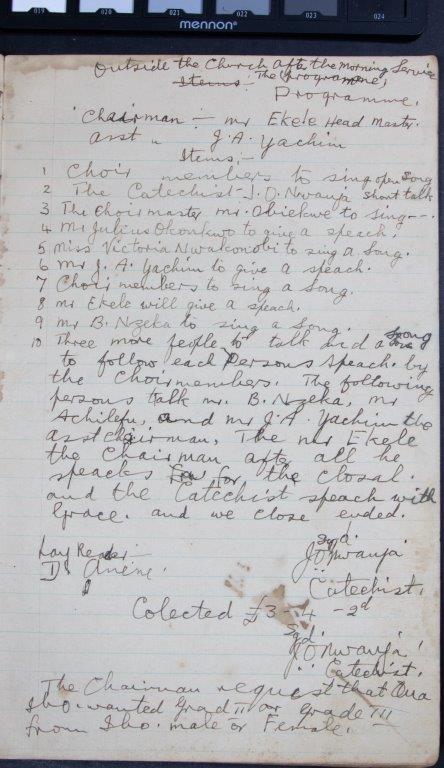 019 020 021 022 023 024
mennon
Outside the Church after the morning Service
Items: The programme,
Programme.
Chairman :- mr Ekele Head master.
asst " J. A. Yachim
Items:-
1 Choir members to sing open song
2 The Catechist - J. O. Nwanja short talk
3 The Choirmaster mr. Obiekwe to sing --.
4 Mr Julius Okonkwo to give a speach.
5 Miss Victoria Nwakonobi to sing a Song.
6 Mr J. A. Yachim to give a speach.
7 Choir members to sing a Song.
8 mr Ekele will give a speach.
9 mr B. Nzeka to sing a Song.
10 Three more people to talk and a soong
to follow each Persons speach. by
the Choirmembers. The following
persons talk mr. B. Nzeka, mr
Achilefu, and mr J. A. Yachim the
asst chairman, The mr Ekele
the Chairman after all he
speacks for the closal.
and the Catechist speach with
Grace. and we close ended.
Lay Reader :-
D. Anene.
sgd.
J. O. Nwanja.
Catechist.
Colected £3 - 4 - 2d
sgd
J. O. Nwanja
Catechist.
The Chairman request that
Iho. wanted Grad II or Grade III
from Iho. male or Female.